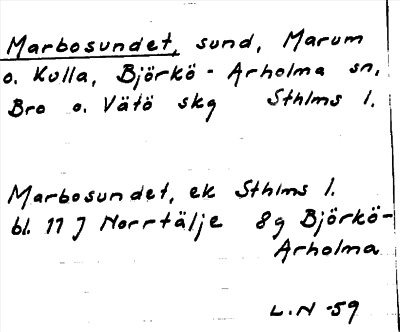 Marbosundet, sund, Marum
o. Kulla, Björkö - Arholma sn,
Bro o. Vätö skg Sthlms l.
Marbosundet, ek Sthlms l.
bl. 11 J Norrtälje 8g Björkö-
Arholma
L.N -59